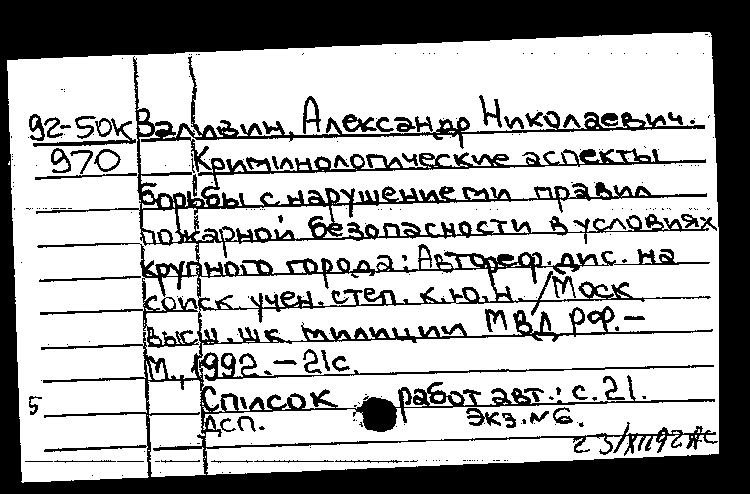 92-50к Валивин, Александр Николаевич.
970 Криминологические аспекты
борьбы с нарушениеми правил
пожарной безопасности в условиях
крупного города: Автореф. дис. на
соиск. учен. степ. к.ю.н. / Моск
высш. шк милиции МВД РФ. –
М., 1992. – 21с.
5 Список работ авт.: с. 21.
ДСП. Экз. № 6.
2 3/XII92